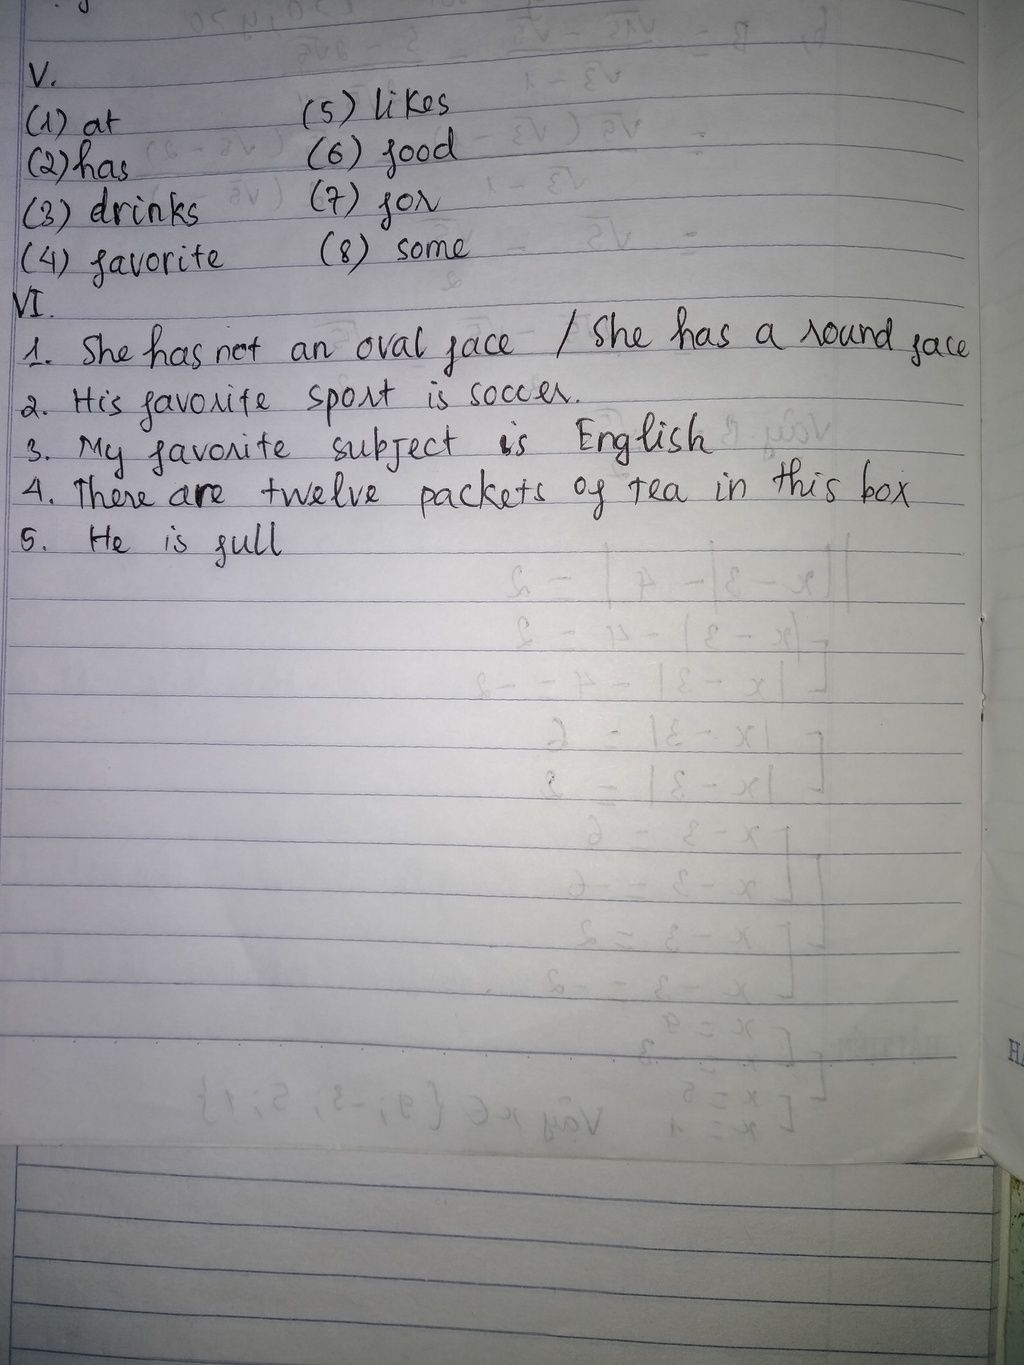 V.
(1) at (5) likes
(2) has (6) food
(3) drinks (7) for
(4) favorite (8) some
VI.
1. She has not an oval face / She has a round face
2. His favorite sport is soccer.
3. My favorite subject is English
4. There are twelve packets of tea in this box
5. He is full